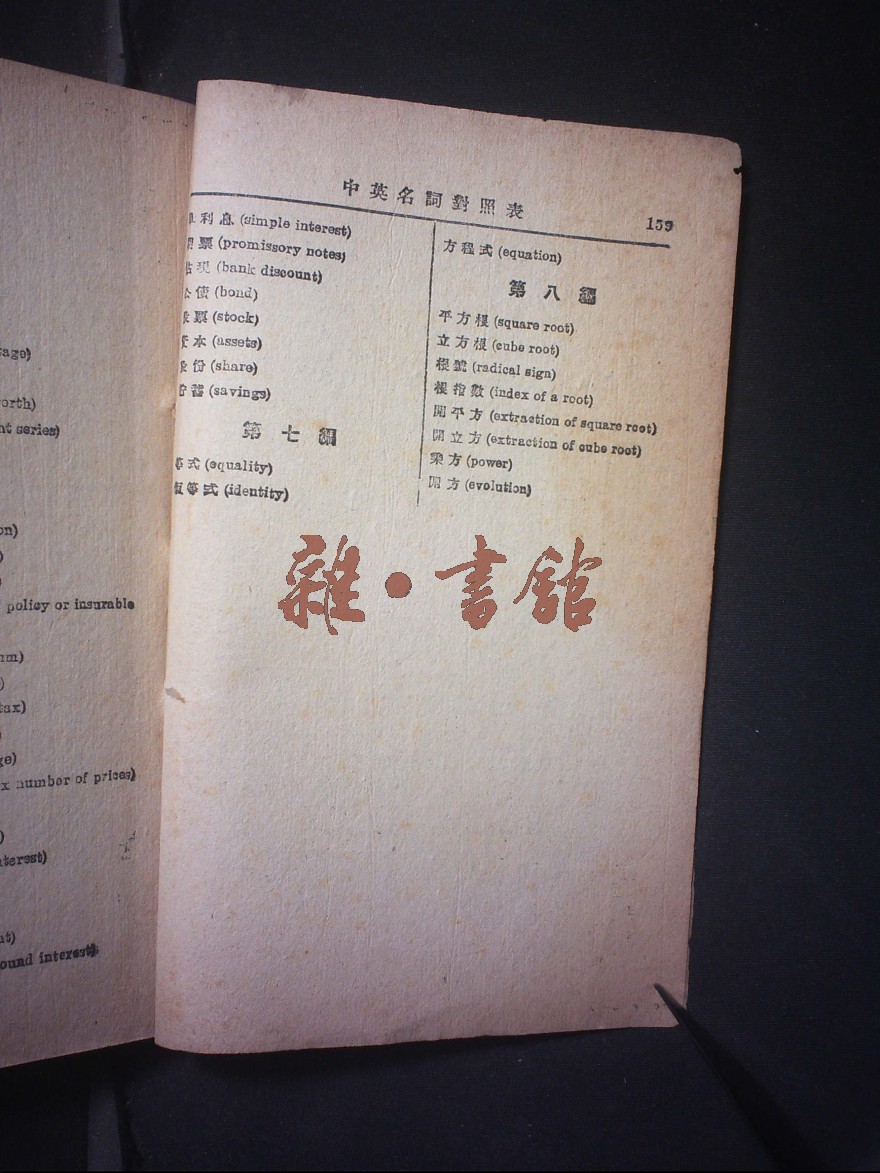 中英名詞對照表 159
利息 (simple interest)
票 (promissory notes)
現 (bank discount)
債 (bond)
票 (stock)
本 (assets)
份 (share)
蓄 (savings)
第七編
等式 (equality)
恆等式 (identity)
方程式 (equation)
第八編
平方根 (square root)
立方根 (cube root)
根號 (radical sign)
根指數 (index of a root)
開平方 (extraction of square root)
開立方 (extraction of cube root)
乘方 (power)
開方 (evolution)
雜·書館
orth)
nt series)
on)
policy or insurable
tax)
x number of prices)
terest)
ound interest)